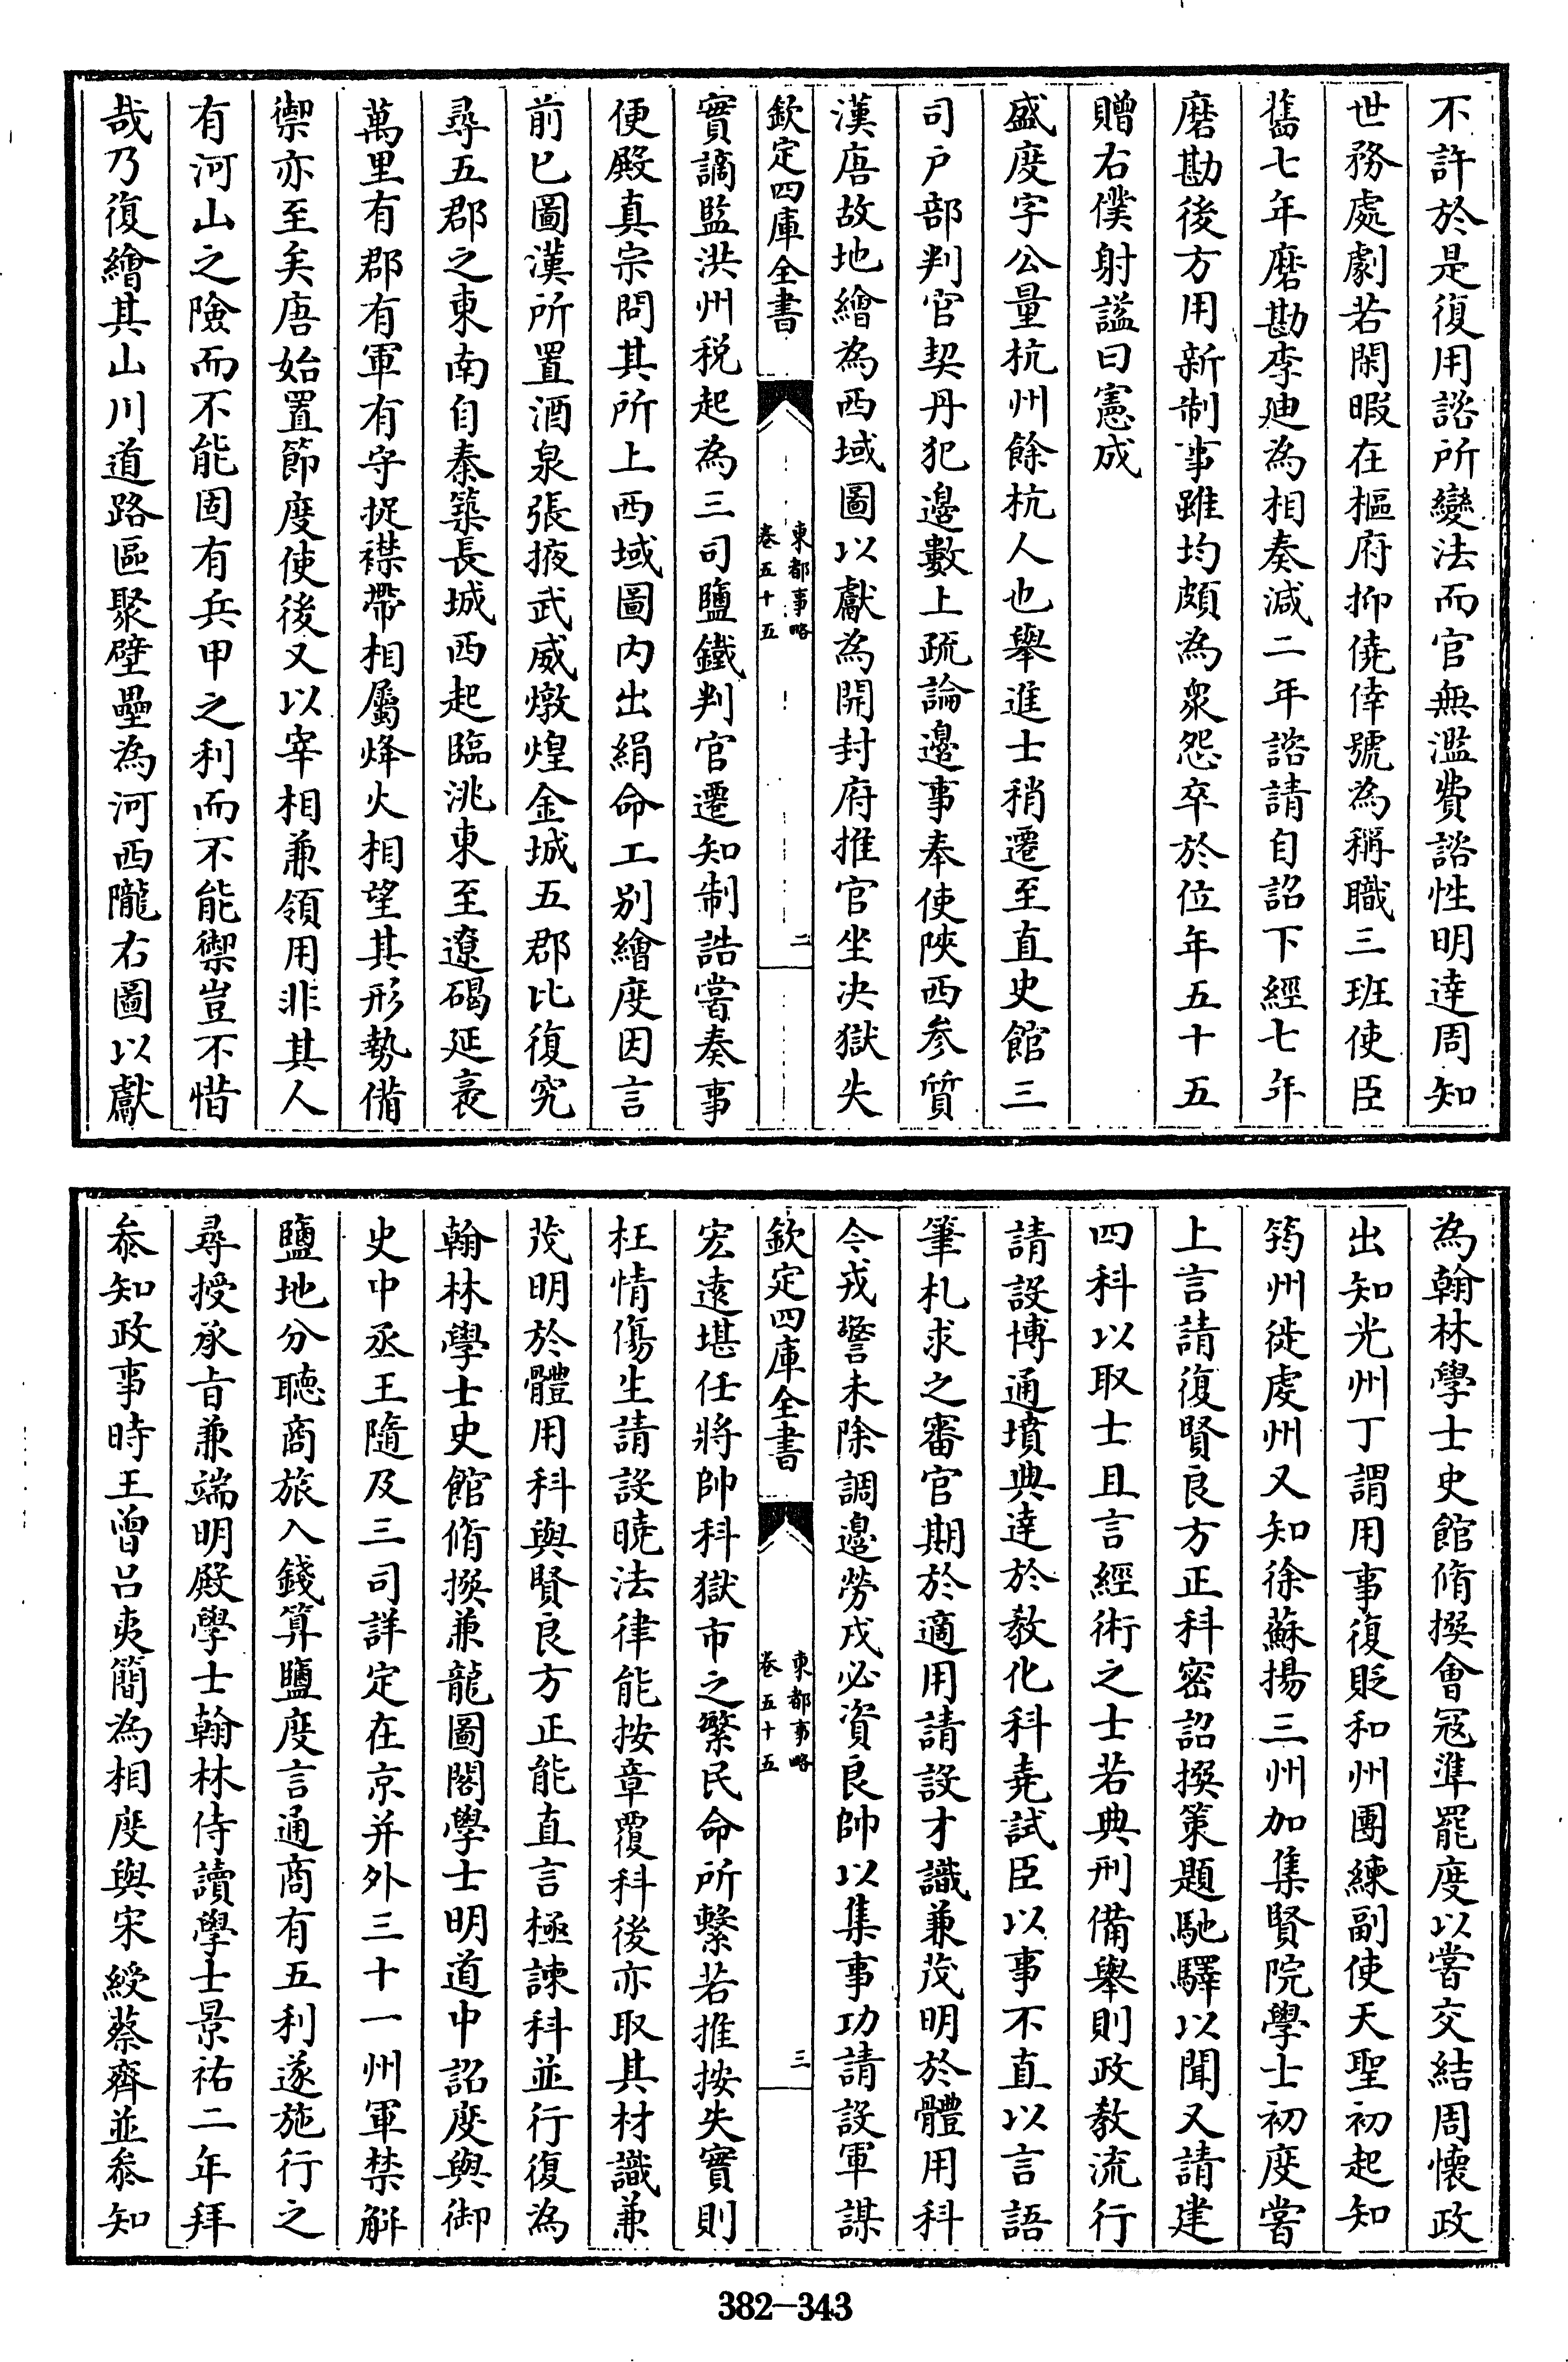 不許於是復用諮所變法而官無濫費諮性明達周知
世務處劇若閑暇在樞府抑僥倖號為稱職三班使臣
舊七年磨勘李廸為相奏減二年諮請自詔下經七年
磨勘後方用新制事雖均頗為衆怨卒於位年五十五
贈右僕射諡曰憲成
盛度字公量杭州餘杭人也舉進士稍遷至直史館三
司户部判官契丹犯邊數上疏論邊事奉使陜西参質
漢唐故地繪為西域圖以獻為開封府推官坐决獄失
欽定四庫全書
東都事略
卷五十五
二
實謫監洪州税起為三司鹽鐵判官遷知制誥嘗奏事
便殿真宗問其所上西域圖内出絹命工别繪度因言
前已圖漢所置酒泉張掖武威燉煌金城五郡比復究
尋五郡之東南自秦築長城西起臨洮東至遼碣延袤
萬里有郡有軍有守捉襟帶相屬烽火相望其形勢備
禦亦至矣唐始置節度使後又以宰相兼領用非其人
有河山之險而不能固有兵甲之利而不能禦豈不惜
哉乃復繪其山川道路區聚壁壘為河西隴右圖以獻
為翰林學士史館脩撰會冦準罷度以嘗交結周懷政
出知光州丁謂用事復貶和州團練副使天聖初起知
筠州徙䖍州又知徐蘇揚三州加集賢院學士初度嘗
上言請復賢良方正科密詔撰策題馳驛以聞又請建
四科以取士且言經術之士若典刑備舉則政教流行
請設博通墳典達於教化科堯試臣以事不直以言語
筆札求之審官期於適用請設才識兼茂明於體用科
今戎警未除調邊勞戍必資良帥以集事功請設軍謀
欽定四庫全書
東都事略
卷五十五
三
宏遠堪任將帥科獄市之繁民命所繫若推按失實則
枉情傷生請設曉法律能按章覆科後亦取其材識兼
茂明於體用科與賢良方正能直言極諫科並行復為
翰林學士史館脩撰兼龍圖閣學士明道中詔度與御
史中丞王隨及三司詳定在京并外三十一州軍禁解
鹽地分聴商旅入錢算鹽度言通商有五利遂施行之
尋授承㫖兼端明殿學士翰林侍讀學士景祐二年拜
叅知政事時王曾吕夷簡為相度與宋綬蔡齊並叅知
382-343